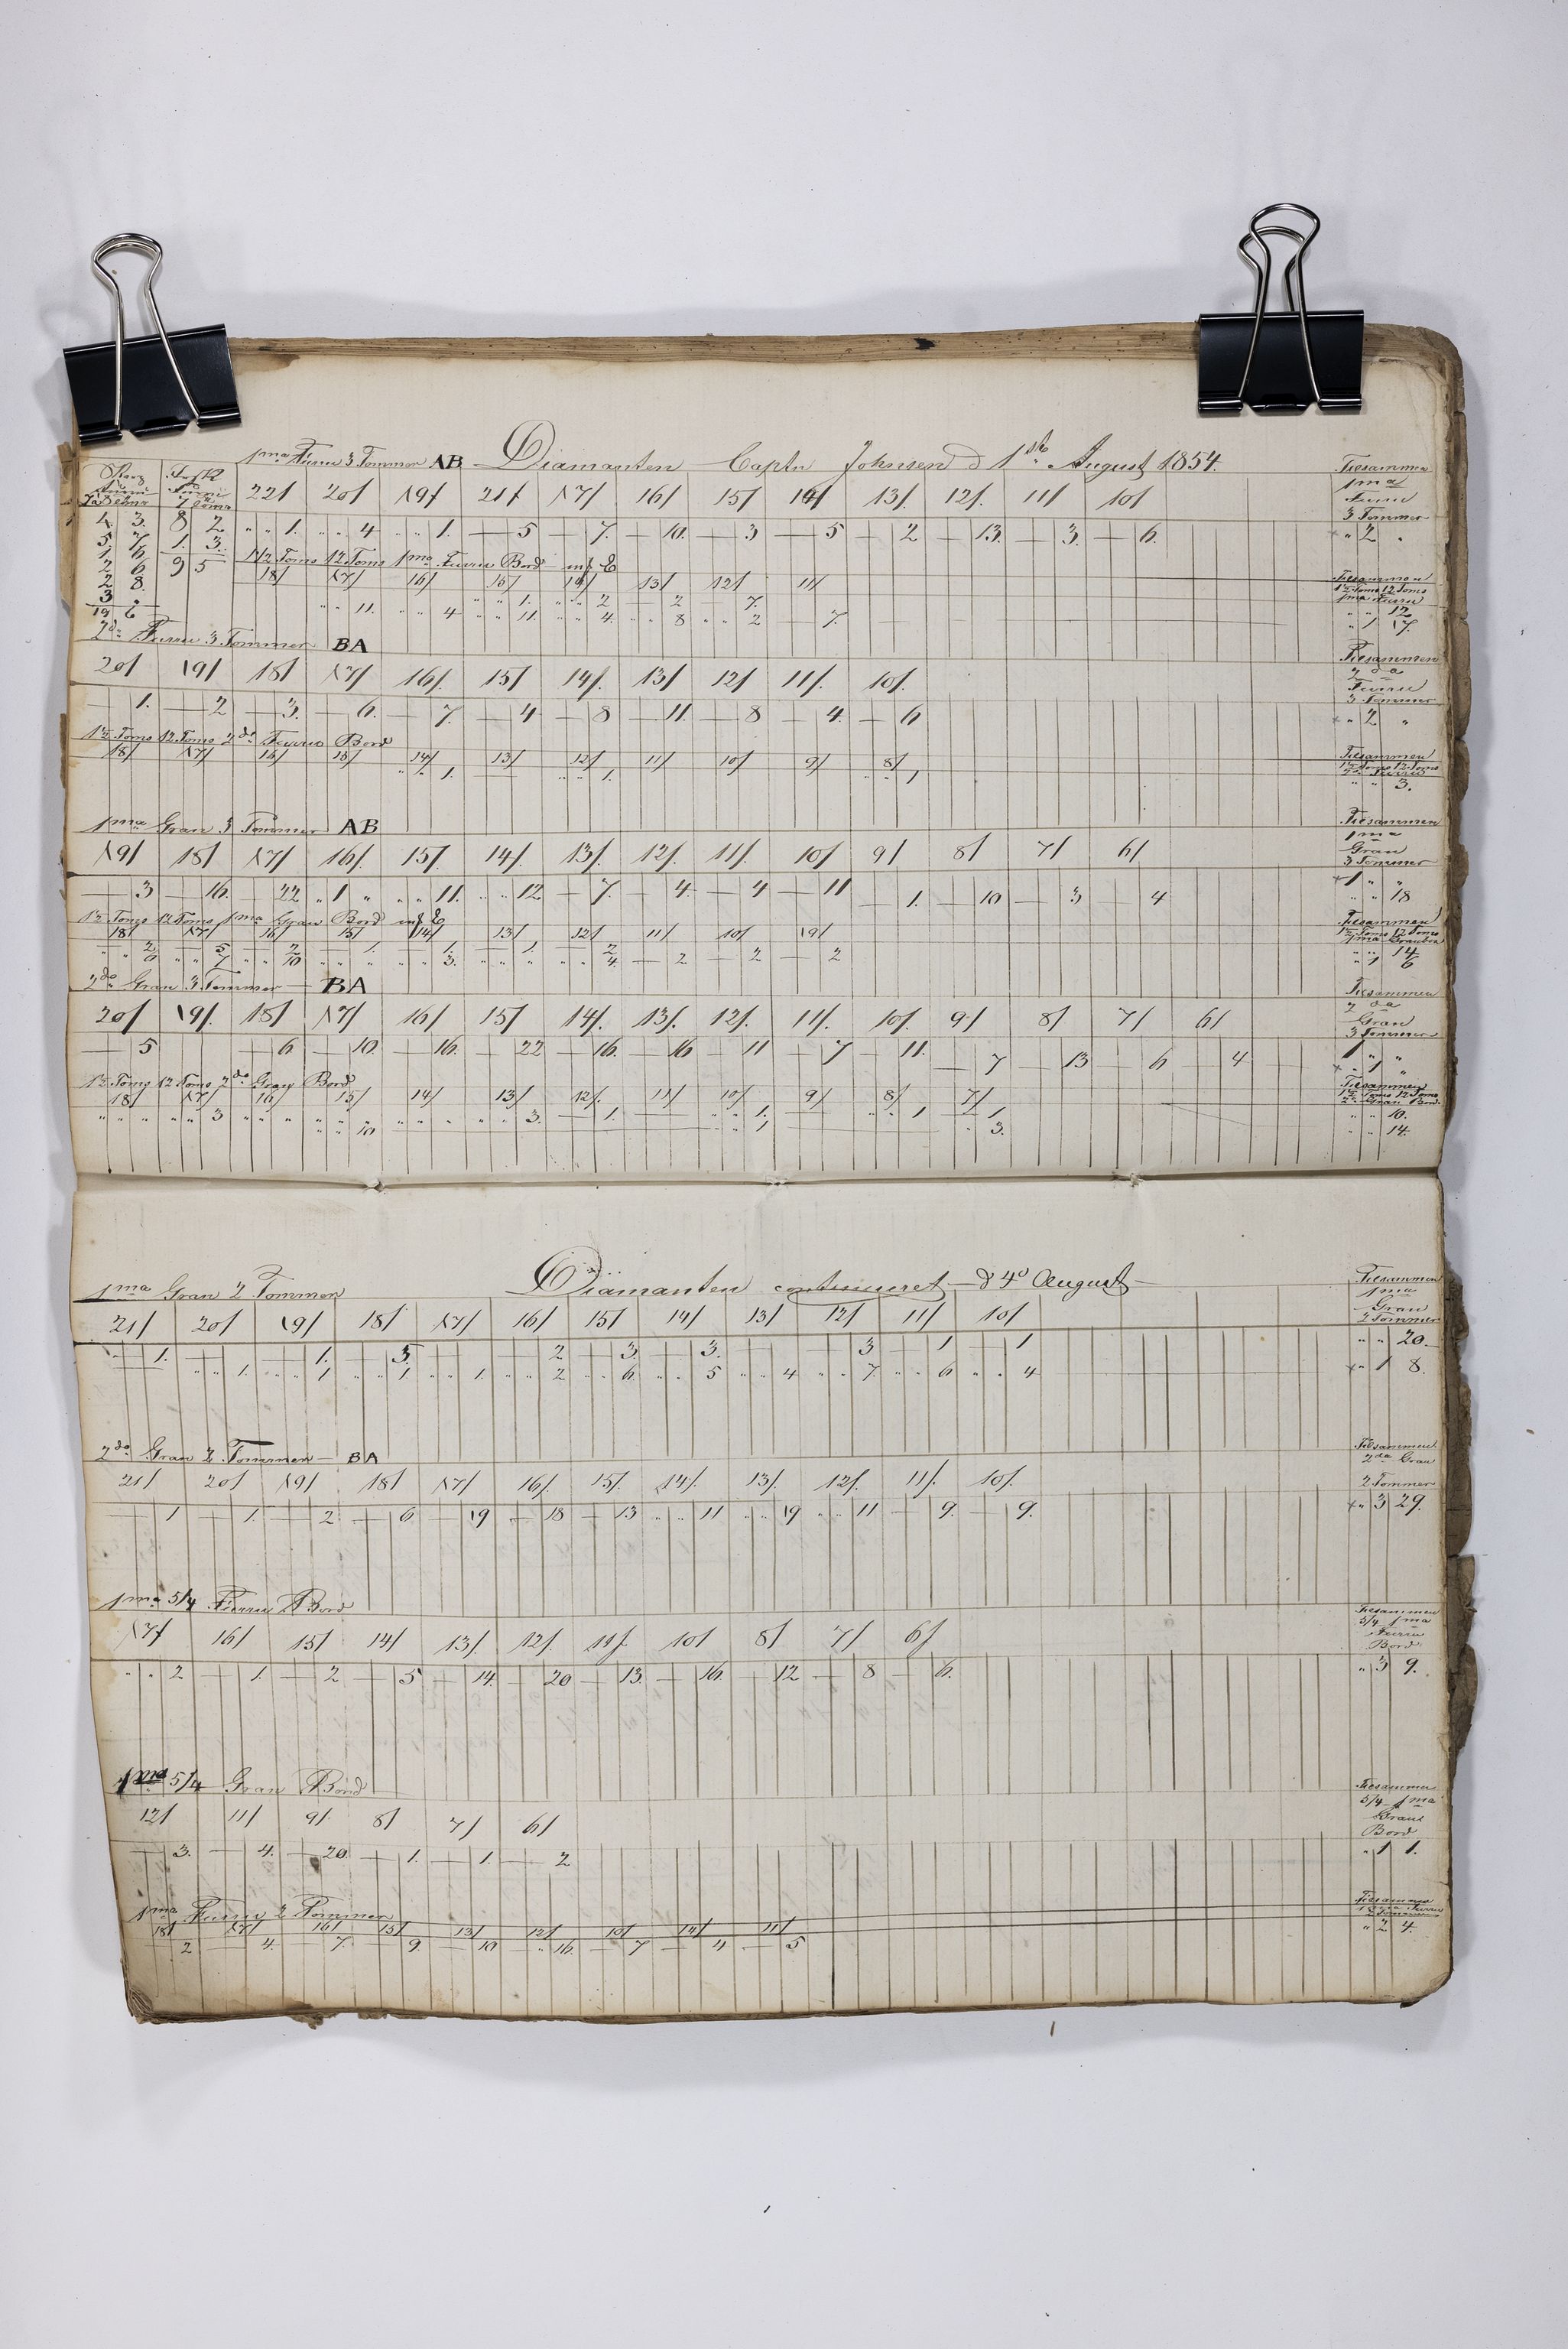 1ma Furru 3 Tommer AB Diamanten Captn Johnsen d 1ste August 1854. Tilsammen
22/ 20/ 19/ 21/ 17/ 16/ 15/ 14/ 13/ 12/ 11/ 10/ 1ma Furru 3 Tommer
1 3. 8 2 " " 1. " " 4 " " 1. — 5 — 7. — 10. — 3 — 5 — 2 — 13. — 3. — 6. " 2 "
5 7 1. 3.
1 6 9 5 1 1/2 Toms 12 Toms 1ma Furru Bord
2 6 18/ 17/ 16/ 15/ 14/ 13/ 12/ 11/ Tilsammen 1 1/2 Toms 12 Toms 1ma Furru
2 8. " " 11. " " 4 " " 1. " " 2 — 2 — 7. " " 12
3 " " " 11. " " 4. " " 8 " " 2 — 7. " 1 17.
19 6
2da Furru 3 Tommer BA Tilsammen
20/ 19/ 18/ 17/ 16/ 15/ 14/ 13/ 12/ 11/ 10/ 2da Furru 3 Tommer
— 1. — 2 — 3. — 6. — 7. — 4 — 8 — 11. — 8 — 4. — 6 " 2 "
1 1/2 Toms 12 Toms 2da Furru Bord
18/ 17/ 16/ 15/ 14/ 13/ 12/ 11/ 10/ 9/ 8/ Tilsammen 1 1/2 Toms 12 Toms 2da Furru
" " 1. " " 1. " " 1 " " 3.
1ma Gran 3 Tommer AB Tilsammen
19/ 18/ 17/ 16/ 15/ 14/ 13/ 12/ 11/ 10/ 9/ 8/ 7/ 6/ 1ma Gran 3 Tommer
— 3 — 16. — 22 " 1 " " " 11. " " 12 — 7. — 4. — 4 — 11 — 1. — 10 — 3 — 4 1 " "
" " 18
1 1/2 Toms 12 Toms 1ma Gran Bord
18/ 17/ 16/ 15/ 14/ 13/ 12/ 11/ 10/ 9/ Tilsammen 1 1/2 Toms 12 Toms 1ma Gran
" " 2 " " 5 " " 2 — 1. — 1. — 1. — 2 " " 14
" " 6 " " 7 " " 10 " " " " " 3. " " " " " 4. — 2 — 2 — 2 " 1 6
2do Gran 3 Tommer — BA Tilsammen
20/ 19/ 18/ 17/ 16/ 15/ 14/ 13/ 12/ 11/ 10/ 9/ 8/ 7/ 6/ 2da Gran 3 Tommer
— 5 — 6 — 10. — 16. — 22 — 16. — 16 — 11 — 7 — 11. — 7 — 13 — 6 — 4 1 " "
" 1 "
1 1/2 Toms 12 Toms 2do Gran Bord
18/ 17/ 16/ 15/ 14/ 13/ 12/ 11/ 10/ 9/ 8/ 7/ Tilsammen 1 1/2 Toms 12 Toms 2da Gran Bord
" " " " " 3 " " " " " " " " " " " 3. — 1. " " 1. " " 1 — 1. " " 10.
" " 10 " " 1 " 3. " " 14.
1ma Gran 2 Tommer Diamanten continueret — d 4d August — Tilsammen
21/ 20/ 19/ 18/ 17/ 16/ 15/ 14/ 13/ 12/ 11/ 10/ 1ma Gran 2 Tommer
— 1. — 1. — 5. — 2 — 3. — 3. — 3 — 1 — 1 " " 20.
" " 1. " " 1 " " 1 " " 1. " " 2 " " 6. " " 5 " " 4 " " 7. " " 6 " " 4 " 1 8.
2do Gran 2 Tommer — BA Tilsammen 2da Gran
21/ 20/ 19/ 18/ 17/ 16/ 15/ 14/ 13/ 12/ 11/ 10/ 2 Tommer
— 1 — 1. — 2 — 6 — 19 — 18 — 13 " " 11 " " 19 " " 11 — 9. — 9. " 3 29.
1ma 5/4 Furru Bord Tilsammen
17/ 16/ 15/ 14/ 13/ 12/ 11/ 10/ 8/ 7/ 6/ 5/4 1ma Furru Bord
" " 2 — 1. — 2 — 5 — 14. — 20 — 13. — 16. — 12 — 8 — 6. " 3 9.
1ma 5/4 Gran Bord Tilsammen
12/ 11/ 9/ 8/ 7/ 6/ 5/4 1ma Gran Bord
— 3. — 4. — 20. — 1. — 1. — 2 " 1 1.
1ma Furru 2 Tommer Tilsammen
18/ 17/ 16/ 15/ 13/ 12/ 10/ 14/ 11/ 1ma Furru 2 Tommer
— 2 — 4. — 7. — 9. — 10 — 16. — 7 — 4 — 5 " 2 4.